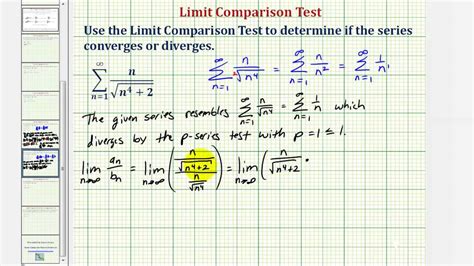 Limit Comparison Test
Use the Limit Comparison Test to determine if the series
converges or diverges.
∞ ∑ n=1 n/√(n⁴ + 2)
∞ ∑ n=1 n/²√(n⁴) = ∞ ∑ n=1 n/n² = ∞ ∑ n=1 1/n¹
The given series resembles ∞ ∑ n=1 n/√(n⁴) = ∞ ∑ n=1 1/n which
diverges by the p-series test with p = 1 ≤ 1.
lim n→∞ aₙ/bₙ = lim n→∞ ( (n/√(n⁴+2)) / (n/√(n⁴)) ) = lim n→∞ ( n/√(n⁴+2) ·